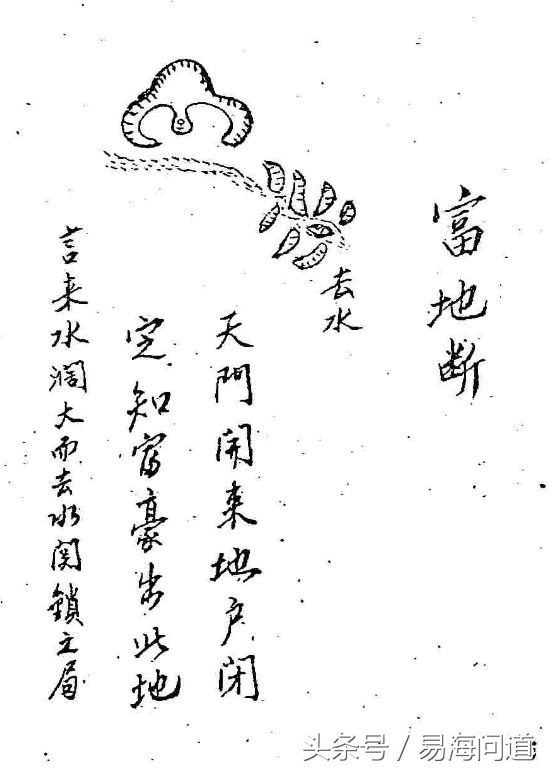 富地断
去水
天門開来地户闭
定知富豪出此地
言来水濶大而去水関鎖之局
头条号／易海问道